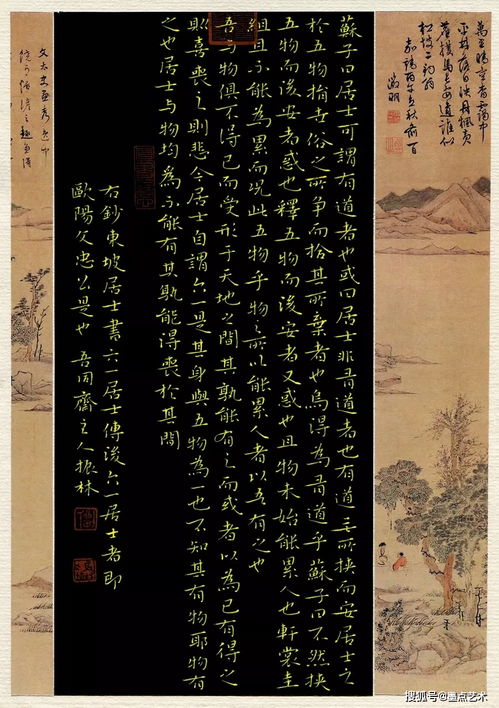 蘇子曰居士可謂有道者也或曰居士非有道者也有道無所挾而安居士之
於五物捐世俗之所爭而拾其所棄者也烏得為有道乎蘇子曰不然挾
五物而後安者惑也釋五物而後安者又惑也且物未始能累人也軒裳圭
組且不能為累而況此五物乎物之所以能累人者以吾有之也
吾與物俱不得已而受形于天地之間其孰能有之而或者以為已有得之
則喜喪之則悲今居士自謂六一是其身與五物為一也不知其有物耶物有
之也居士與物均為不能有其孰能得喪於其間
右鈔東坡居士書六一居士傳後六一居士者即
歐陽文忠公是也 吾同齋主人振林
徵明
搜狐号@墨点艺术